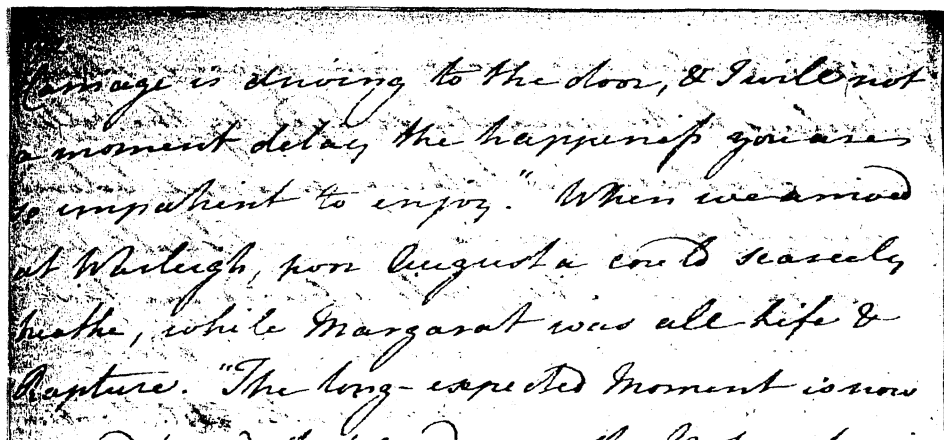 Carriage is driving to the door, & I will not
a moment delay the happiness you are
so impatient to enjoy." When we arrived
at Warleigh, poor Augusta could scarcely
breathe, while Margarat was all Life &
Rapture. "The long-expected Moment is now